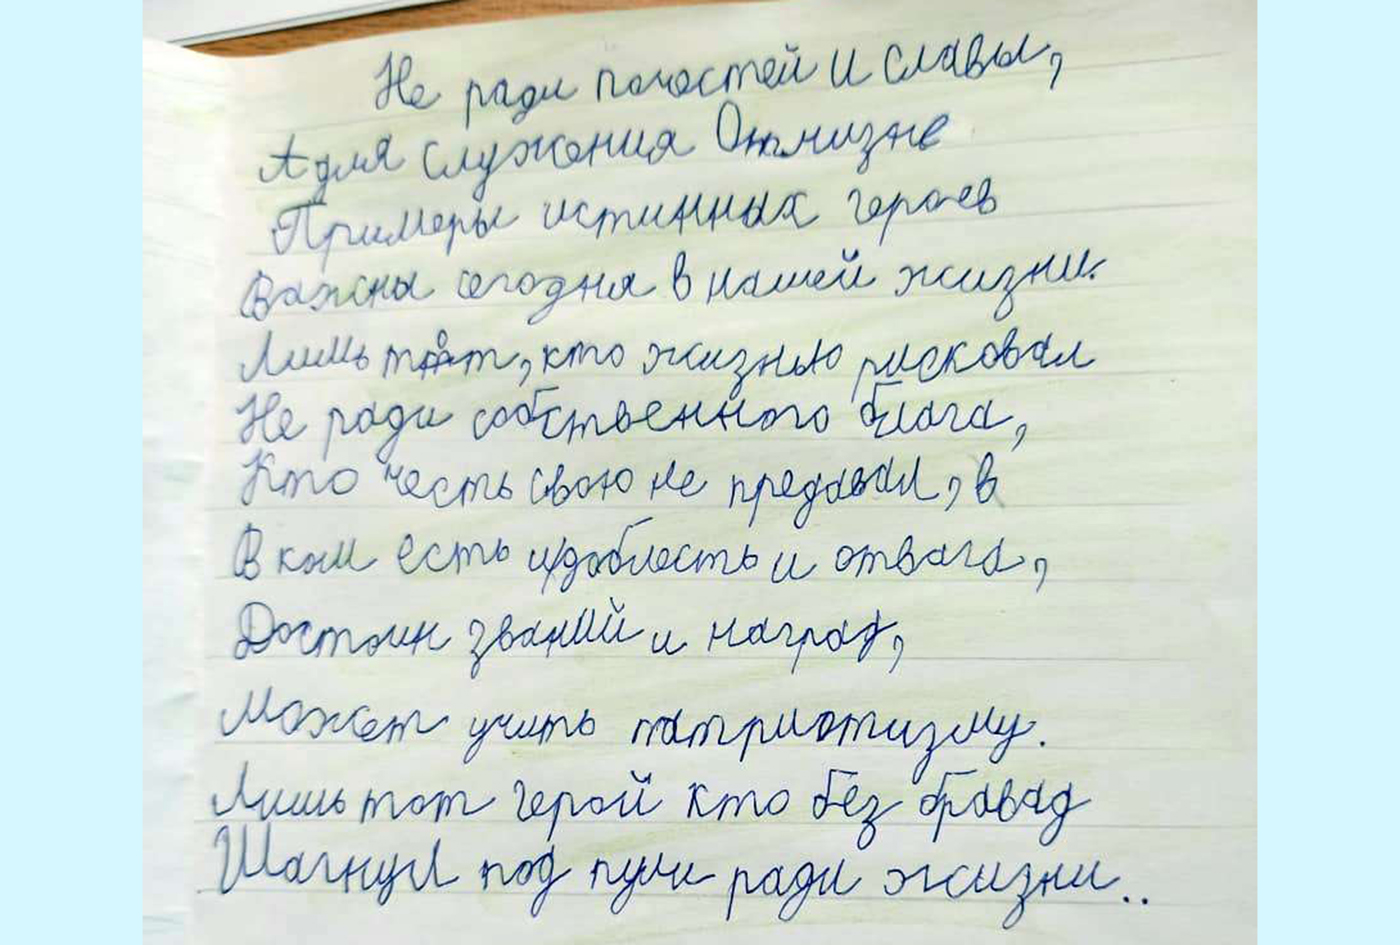 Не ради почестей и славы,
А для служения Отчизне
Примеры истинных героев
Важны сегодня в нашей жизни.
Лишь тот, кто жизнью рисковал
Не ради собственного блага,
Кто честь свою не предавал, в
В ком есть доблесть и отвага,
Достоин званий и наград,
Может учить патриотизму.
Лишь тот герой кто без бравад
Шагнул под пули ради жизни..